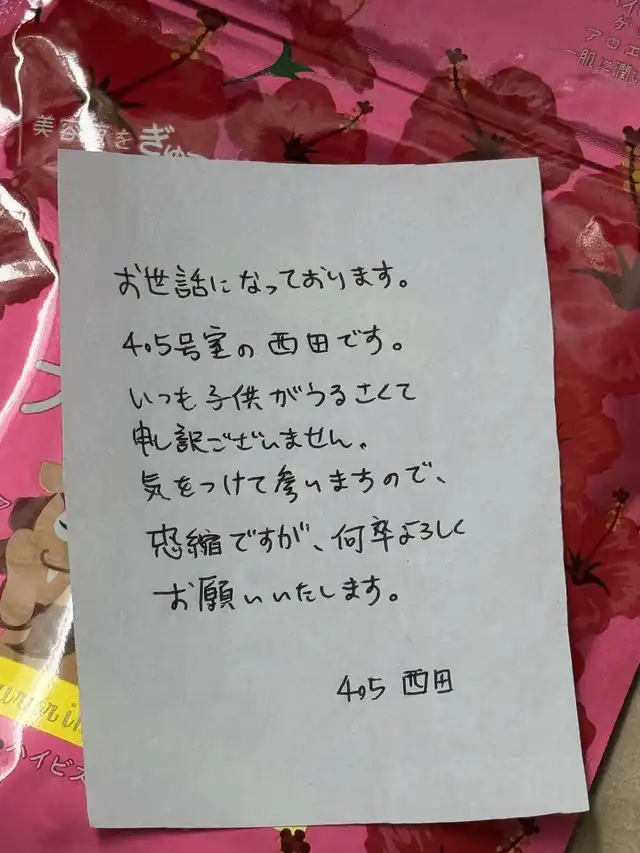 美容液をぎゅっ
アロエ
お世話になっております。
405号室の西田です。
いつも子供がうるさくて
申し訳ございません。
気をつけて参いますので、
恐縮ですが、何卒よろしく
お願いいたします。
405 西田
ハイビス